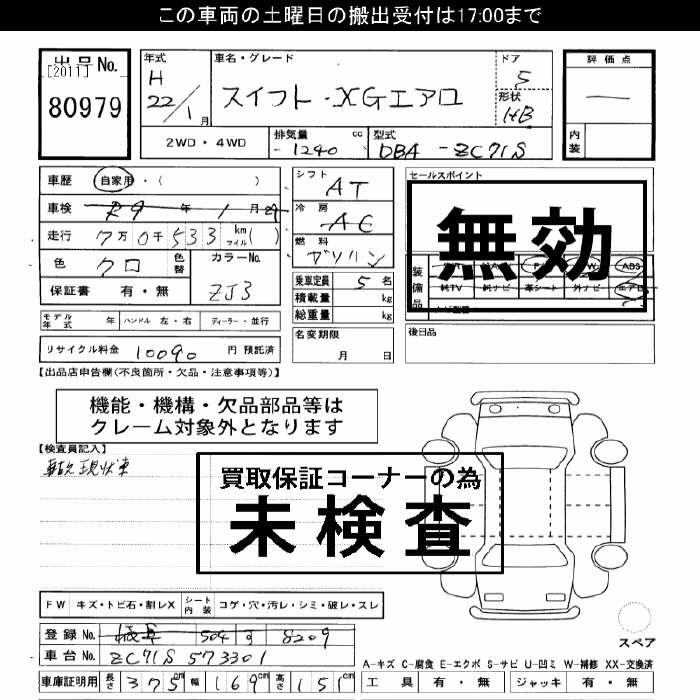 この車両の土曜日の搬出受付は17:00まで
出品No.
[2011]
80979
年式
H
22/1月
車名・グレード
スイフト・XGエアロ
ドア
5
形状
HB
評価点
―
2WD・4WD
排気量 cc
1240
型式
DBA-ZC71S
内装
車歴 自家用・( )
車検 R9年1月
走行 7万0千533km マイル( )
色 クロ 色替
カラーNo.
ZJ3
保証書 有・無
シフト
AT
冷房
AC
燃料
ガソリン
乗車定員 5名
積載量 kg
総重量 kg
セールスポイント
無効
装備品
AB3
純TV 純ナビ 革シート 外ナビ エアロ
モデル年式 年 ハンドル 左・右 ディーラー・並行
名変期限
月 日
後日品
リサイクル料金 10090円 預託済
【出品店申告欄(不良箇所・欠品・注意事項等)】
機能・機構・欠品部品等は
クレーム対象外となります
【検査員記入】
現状車
買取保証コーナーの為
未検査
FW キズ・トビ石・割レX シート内装 コゲ・穴・汚レ・シミ・破レ・スレ
登録No. 岐阜 504 す 8209
車台No. ZC71S 573301
スペア
A-キズ C-腐食 E-エクボ S-サビ U-凹ミ W-補修 XX-交換済
車庫証明用 長さ375cm 幅169cm 高さ151cm
工具 有・無 ジャッキ 有・無